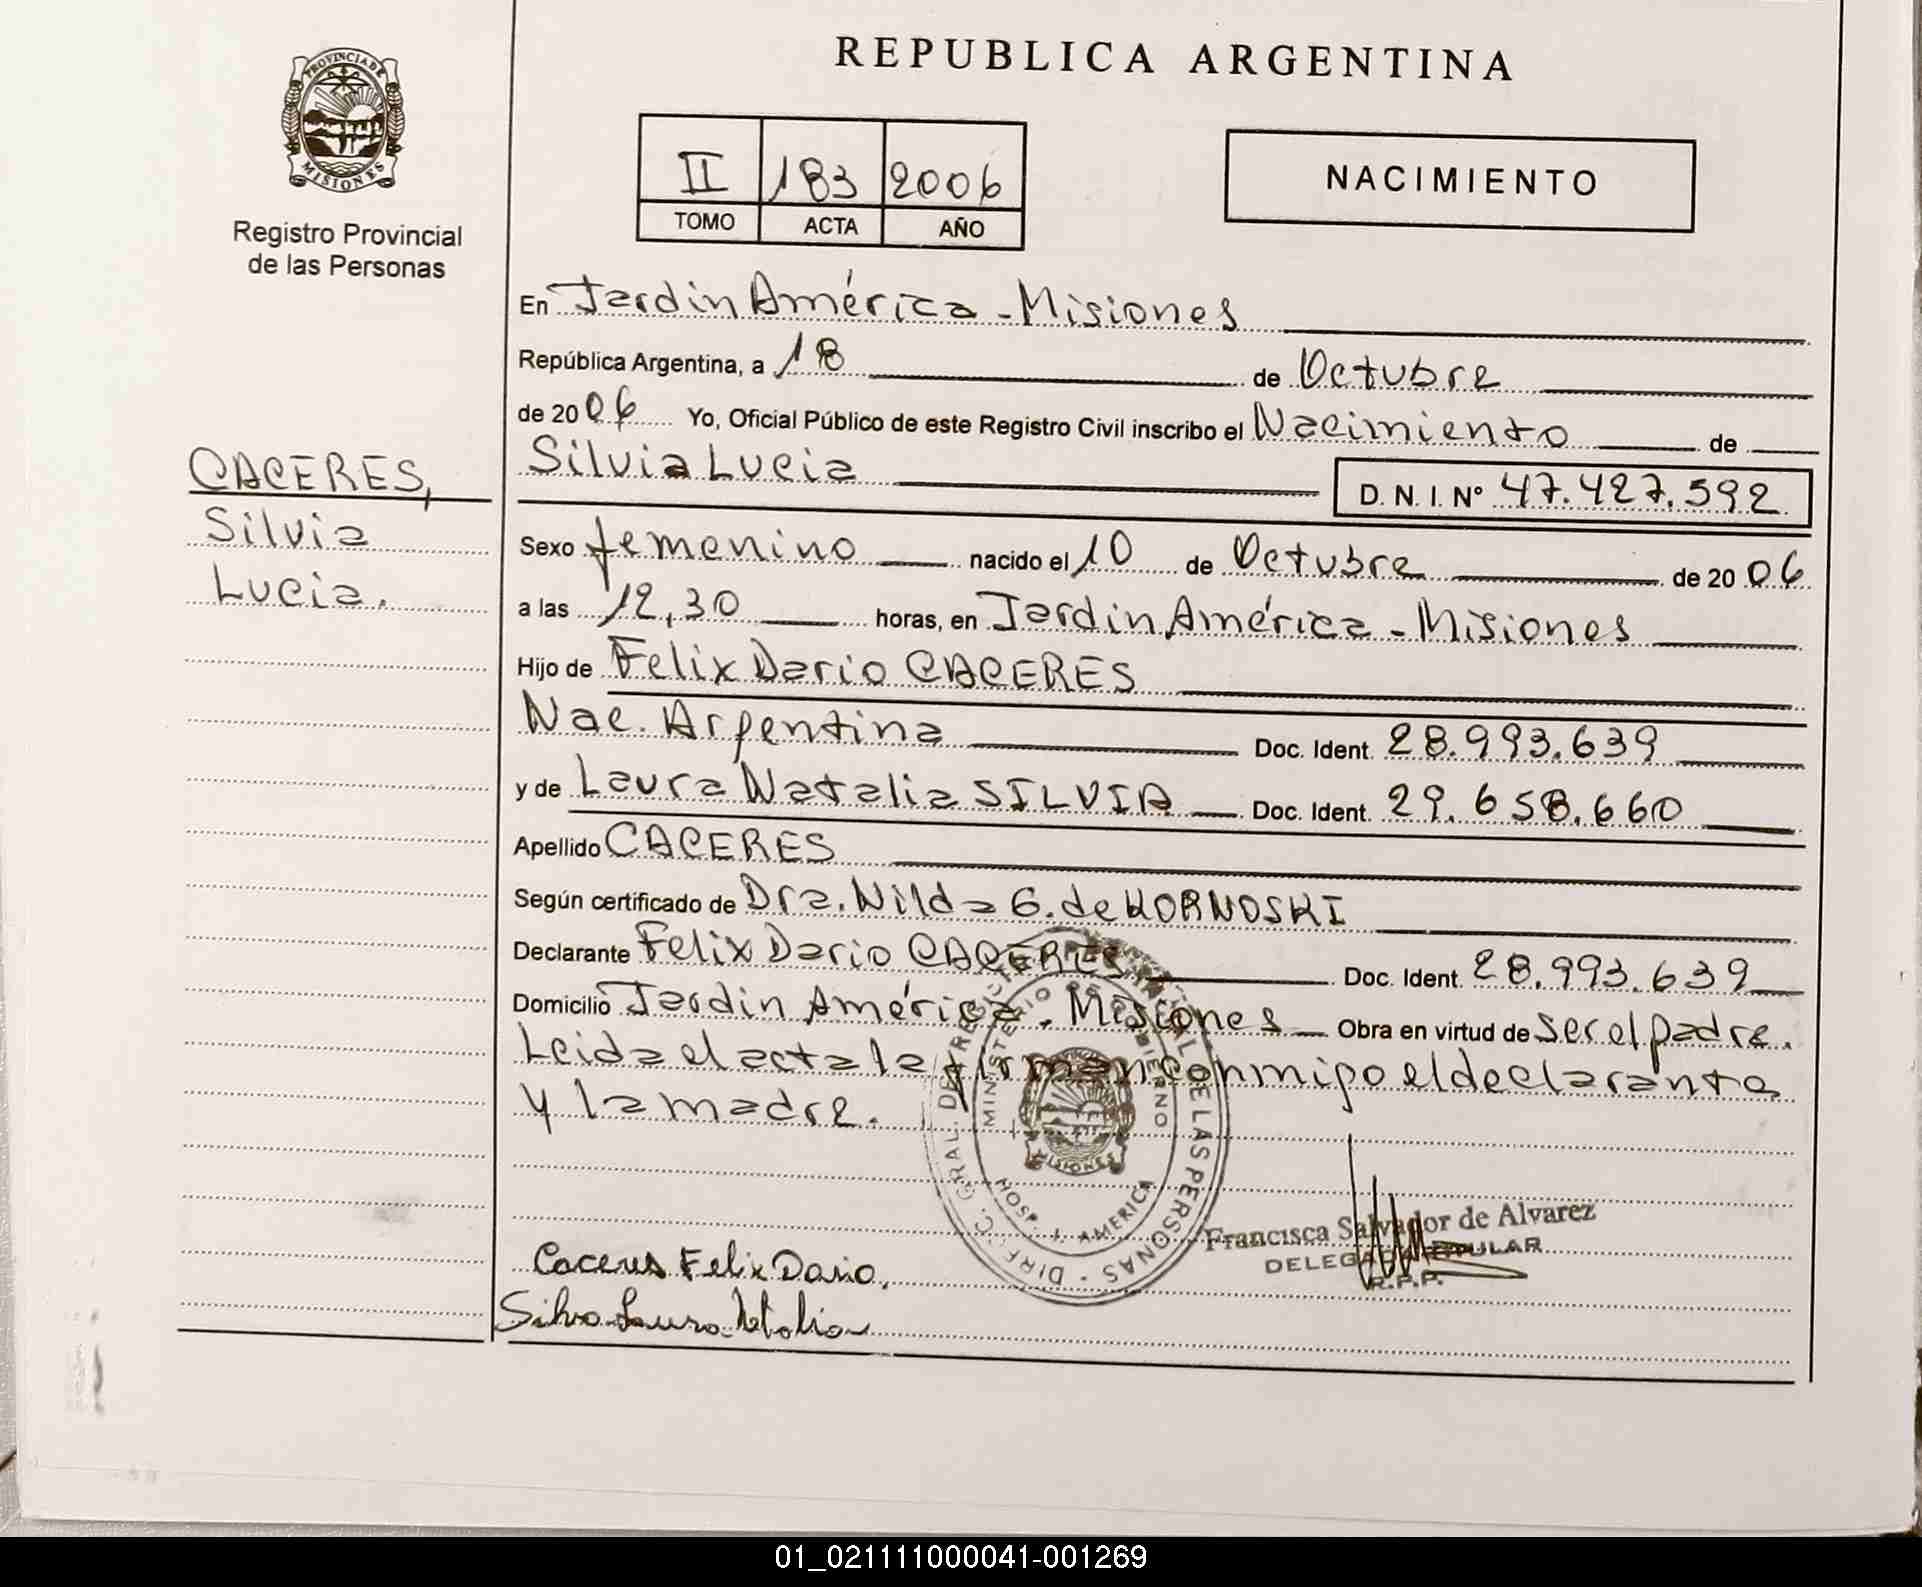 REPUBLICA ARGENTINA
PROVINCIA DE
MISIONES
Registro Provincial
de las Personas
II 183 2006
TOMO ACTA AÑO
NACIMIENTO
CACERES,
Silvia
Lucia.
En Jardin América - Misiones
República Argentina, a 18 de Octubre
de 2006 Yo, Oficial Público de este Registro Civil inscribo el Nacimiento de
Silvia Lucia D. N. I. Nº 47.427.592
Sexo femenino nacido el 10 de Octubre de 2006
a las 12,30 horas, en Jardin América - Misiones
Hijo de Felix Dario CACERES
Nac. Argentina Doc. Ident. 28.993.639
y de Laura Natalia SILVIA Doc. Ident. 29.658.660
Apellido CACERES
Según certificado de Dra. Nilda G. de KORNOSKI
Declarante Felix Dario CACERES Doc. Ident. 28.993.639
Domicilio Jardin América. Misiones Obra en virtud de ser el padre.
Leida el acta la firman conmigo el declarante
y la madre.
MINISTERIO DE GOBIERNO
DE LAS PERSONAS
MISIONES
AMERICA
Francisca Salvador de Alvarez
DELEGADA TITULAR
R.P.P.
Caceres Felix Dario.
Silva Laura Natalia
01_021111000041-001269